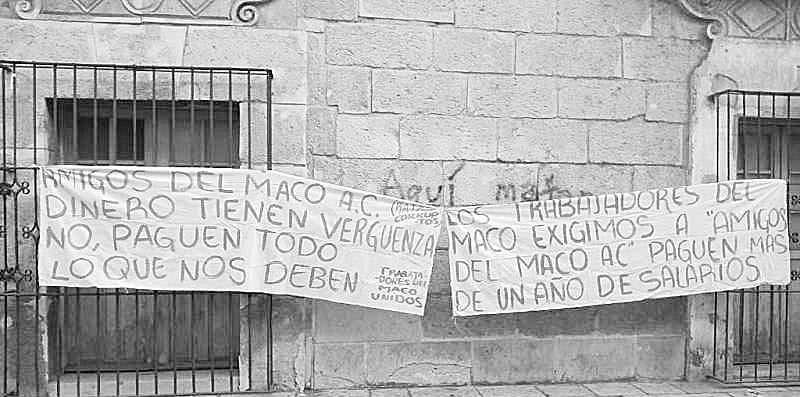 AMIGOS DEL MACO A.C.
DINERO TIENEN VERGUENZA
NO, PAGUEN TODO
LO QUE NOS DEBEN
CORRUP
TOS
TRABAJA-
DORES DEL
MACO
UNIDOS
Aquí mata
LOS TRABAJADORES DEL
MACO EXIGIMOS A "AMIGOS
DEL MACO AC" PAGUEN MAS
DE UN AÑO DE SALARIOS